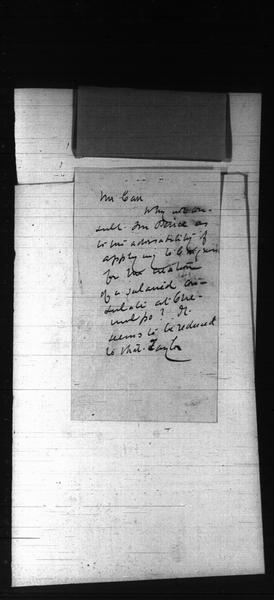 Mr Carr
Why not con-
sult Mr Price as
to the advisability of
applying to Congress
for the creation
of a salaried con-
sulate at Che-
mulpo? It
seems to be reduced
to that.